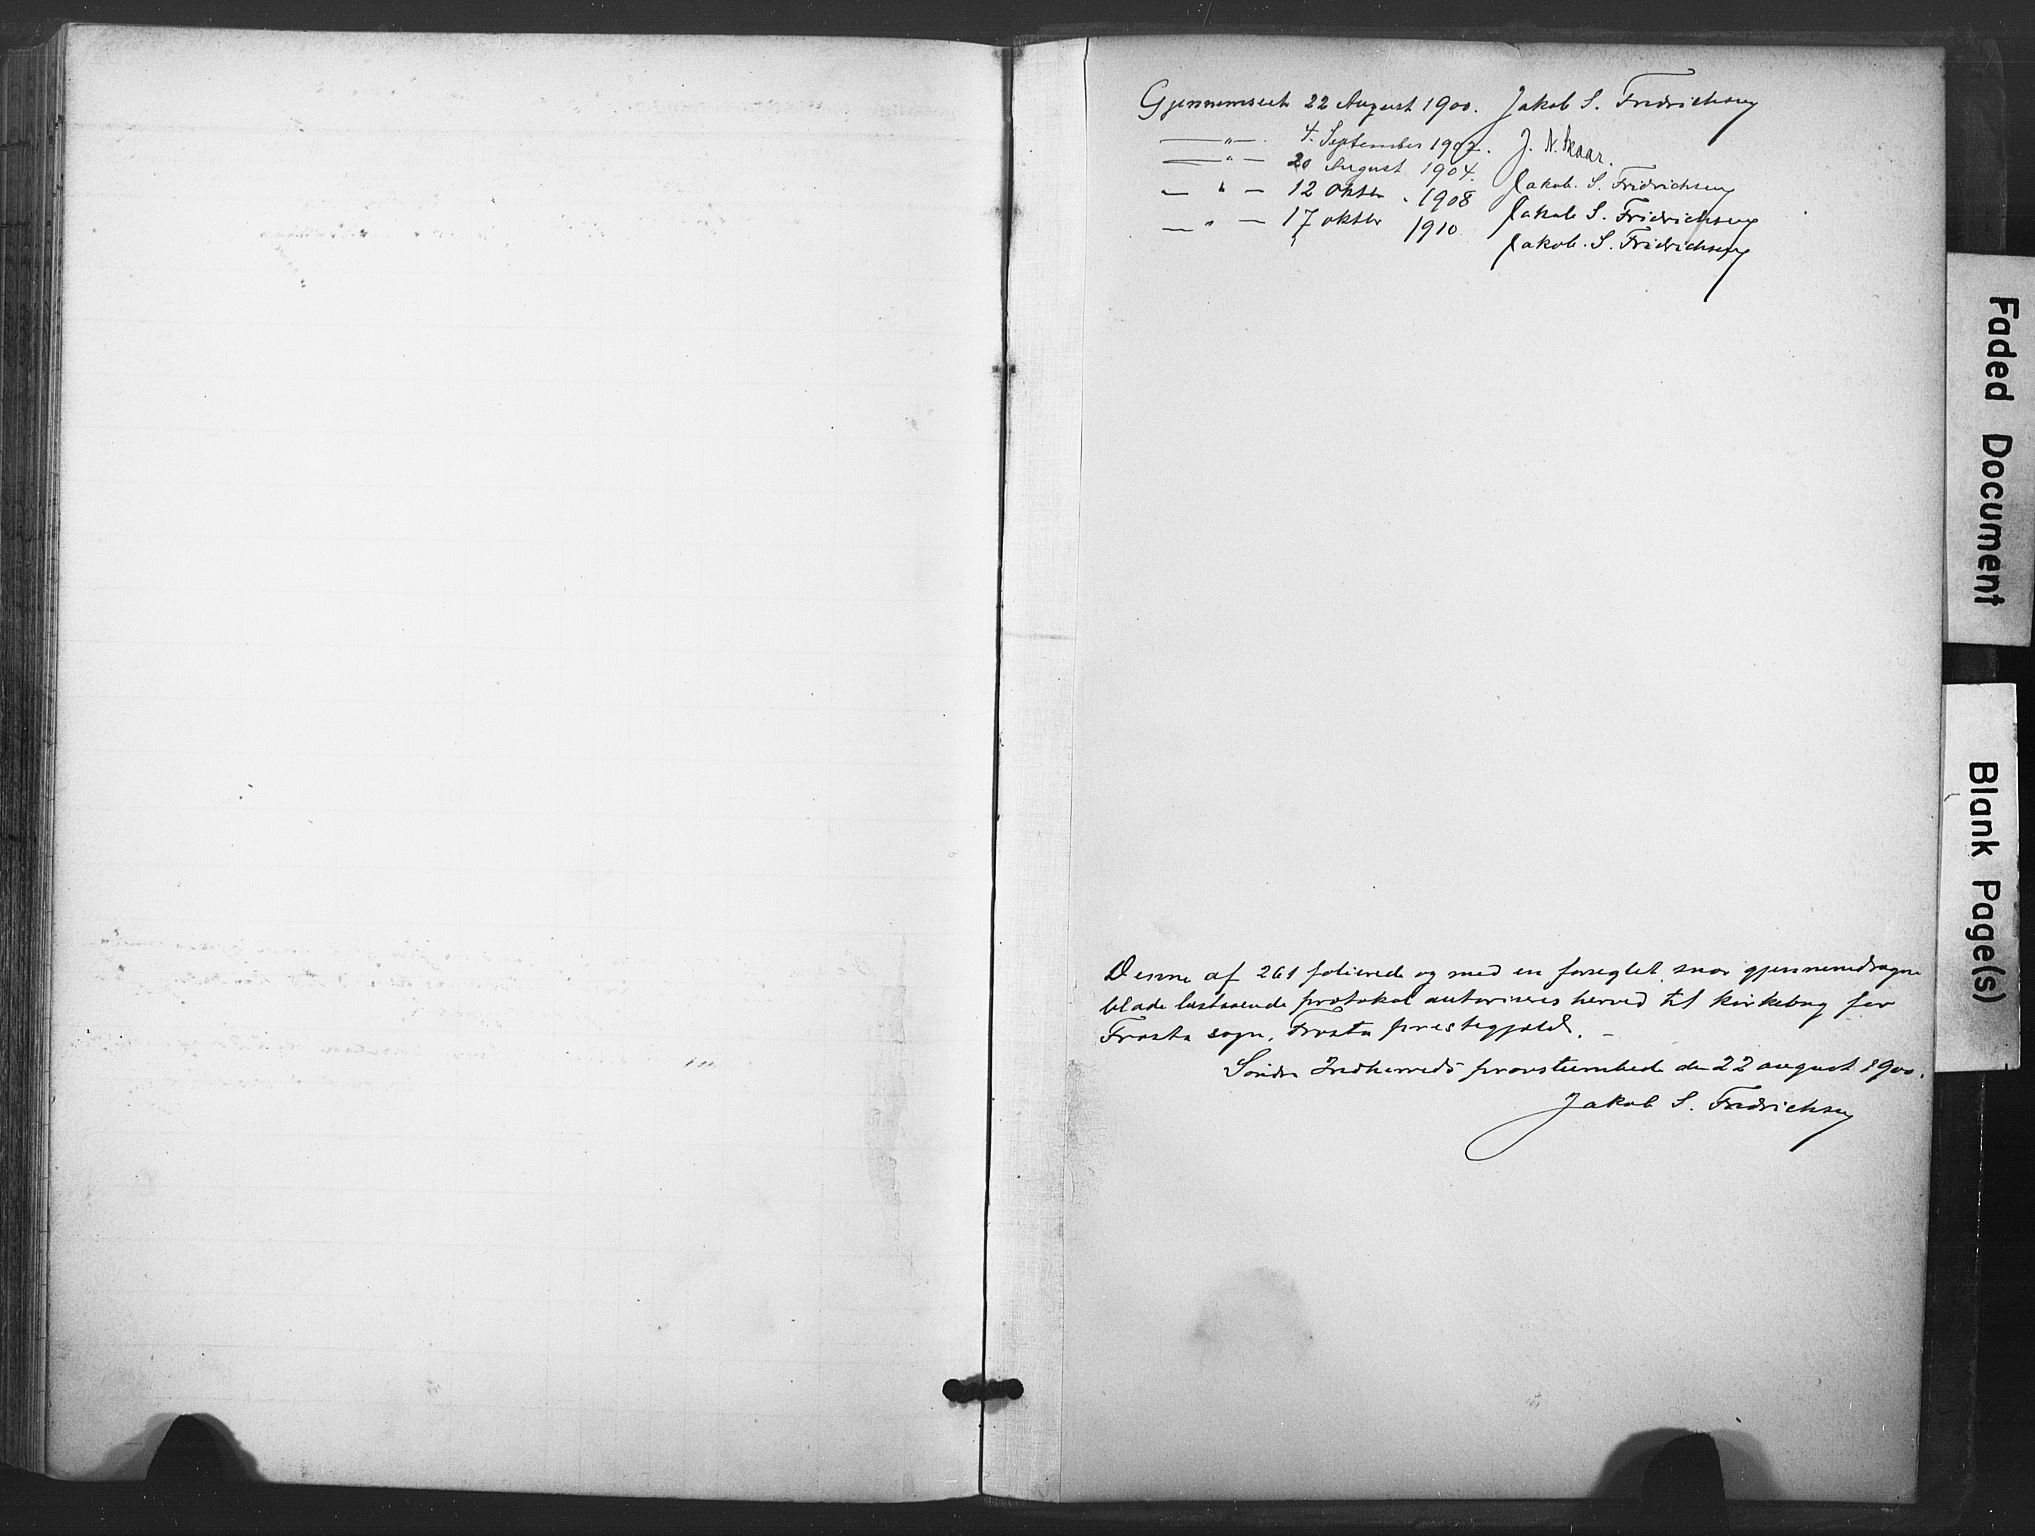 Gjennemseet 22 August 1900. Jakob S. Fridrichsen
—„— 4. September 1902. J. N. Skaar.
—„— 20 August 1904. Jakob. S. Fridrichsen
—„— 12 oktbr. 1908 Jakob S. Fridrichsen
—„— 17 oktbr 1910 Jakob. S. Fridrichsen
Denne af 261 folierede og med en forseglet snor gjennemdragne
blade bestaaende protokol autoriseres herved til kirkebog for
Frosta sogn, Frosta prestegjæld. –
Søndre Indherreds provsteembede den 22 august 1900.
Jakob S. Fridrichsen
Faded Document
Blank Page(s)